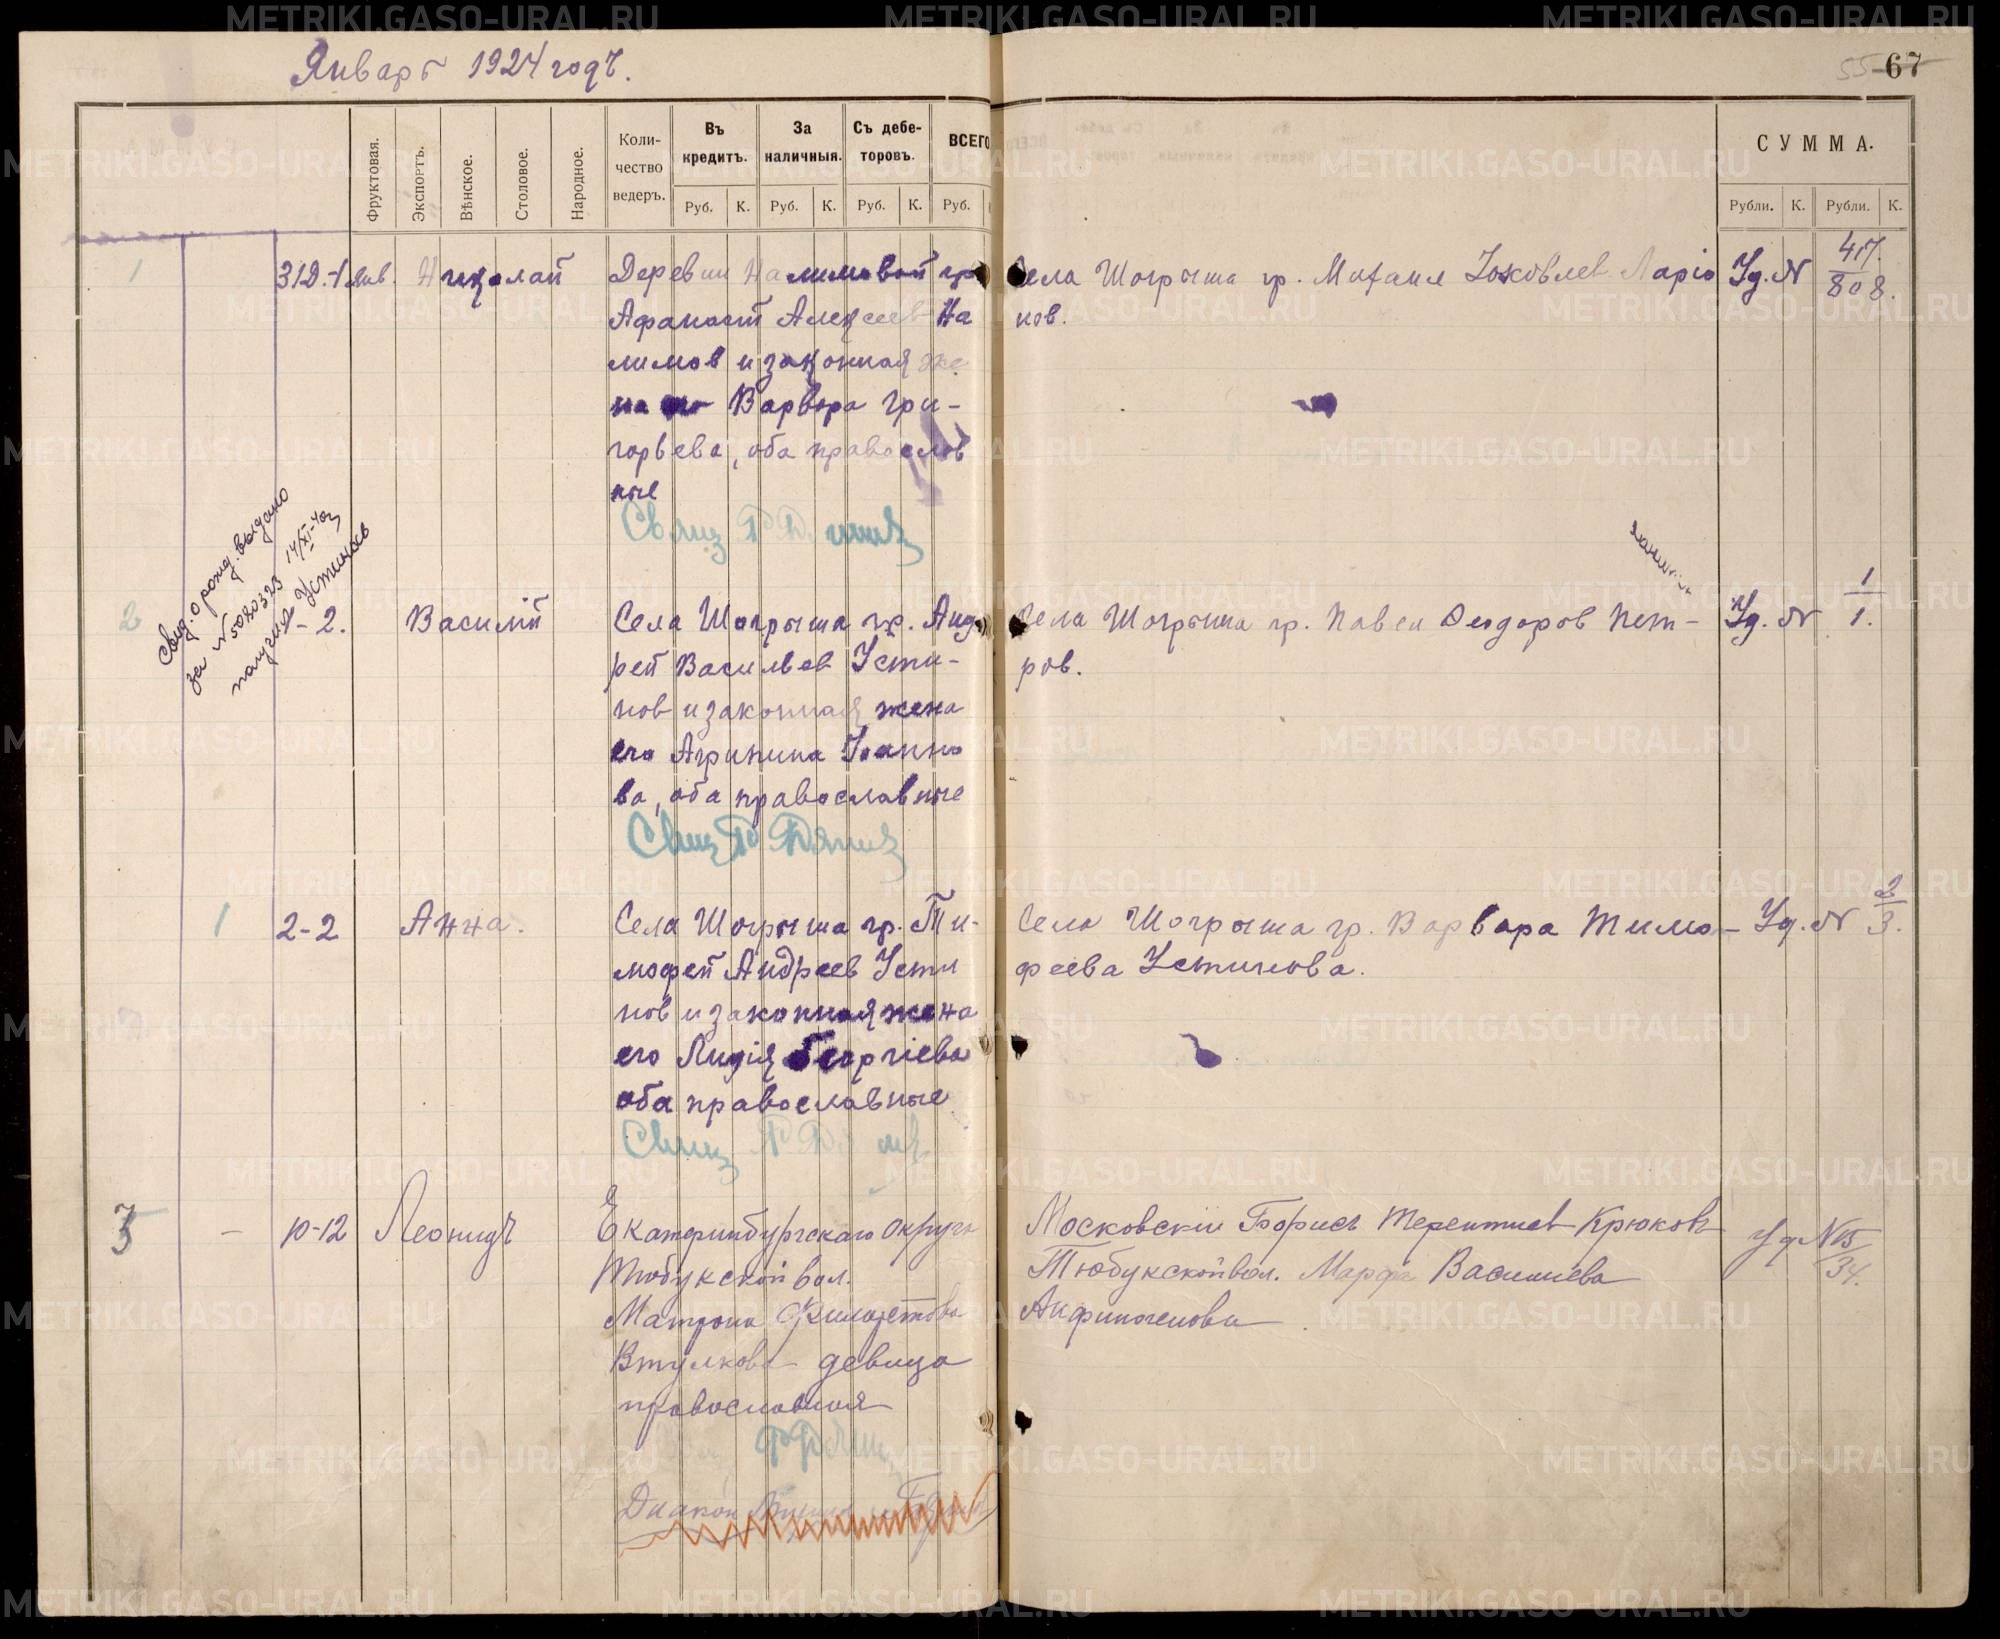 Январь 1924 годъ.
55 67
Фруктовая.
Экспортъ.
Вѣнское.
Столовое.
Народное.
Коли-
чество
ведеръ.
Въ
кредитъ.
За
наличныя.
Съ дебе-
торовъ.
ВСЕГО
Руб. К. Руб. К. Руб. К. Руб.
СУММА.
Рубли. К. Рубли. К.
1 31Д.-1 Янв. Николай
Деревни Налимовой гр
Афанасий Алексеев На
лимов и законная же
на его Варвара Гри-
горьева, оба православ
ные
Свящ
Села Шогрыша гр. Михаил Иаковлев Ларіо
нов.
Уд. N 417.
808.
Свид. о рожд. выдано
за N 5080323 14/XI-40г
получил Устинов
2 - 2. Василій
Села Шогрыша гр. Анд
рей Васильев Усти-
нов и законная жена
его Агрипина Иоанно
ва, оба православные
Свящ
Села Шогрыша гр. Павел Феодоров Пет-
ров.
Уд. N 1
1.
1 2-2 Анна.
Села Шогрыша гр. Ти-
мофей Андреев Усти
нов и законная жена
его Лидія Георгіева
оба православные
Свящ
Села Шогрыша гр. Варвара Тимо-
феева Устинова.
Уд. N 2
3.
3 - 10-12 Леонидъ
Екатеринбургскаго округа
Тюбукской вол.
Матрона Филаретова
Втулкова девица
православная
Диакон
Московскій Борисъ Терентиев Крюковъ
Тюбукской вол. Марфа Василиева
Анфиногенова
Уд N 15
34.
METRIKI.GASO-URAL.RU